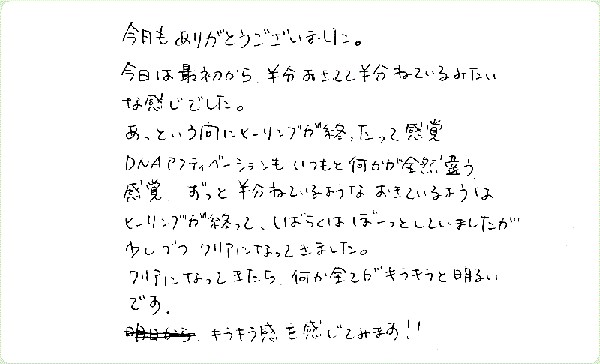 今月もありがとうございました。
今日は最初から、半分おきてて半分ねているみたい
な感じでした。
あっという間にヒーリングが終ったって感覚
DNAアクティベーションもいつもと何かが全然違う
感覚、ずっと半分ねているような おきているような
ヒーリングが終って、しばらくはぼーっとしていましたが
少しづつクリアになってきました。
クリアになってきたら、何か全てがキラキラと明るい
です。
明日から、キラキラ感を感じてみます!!